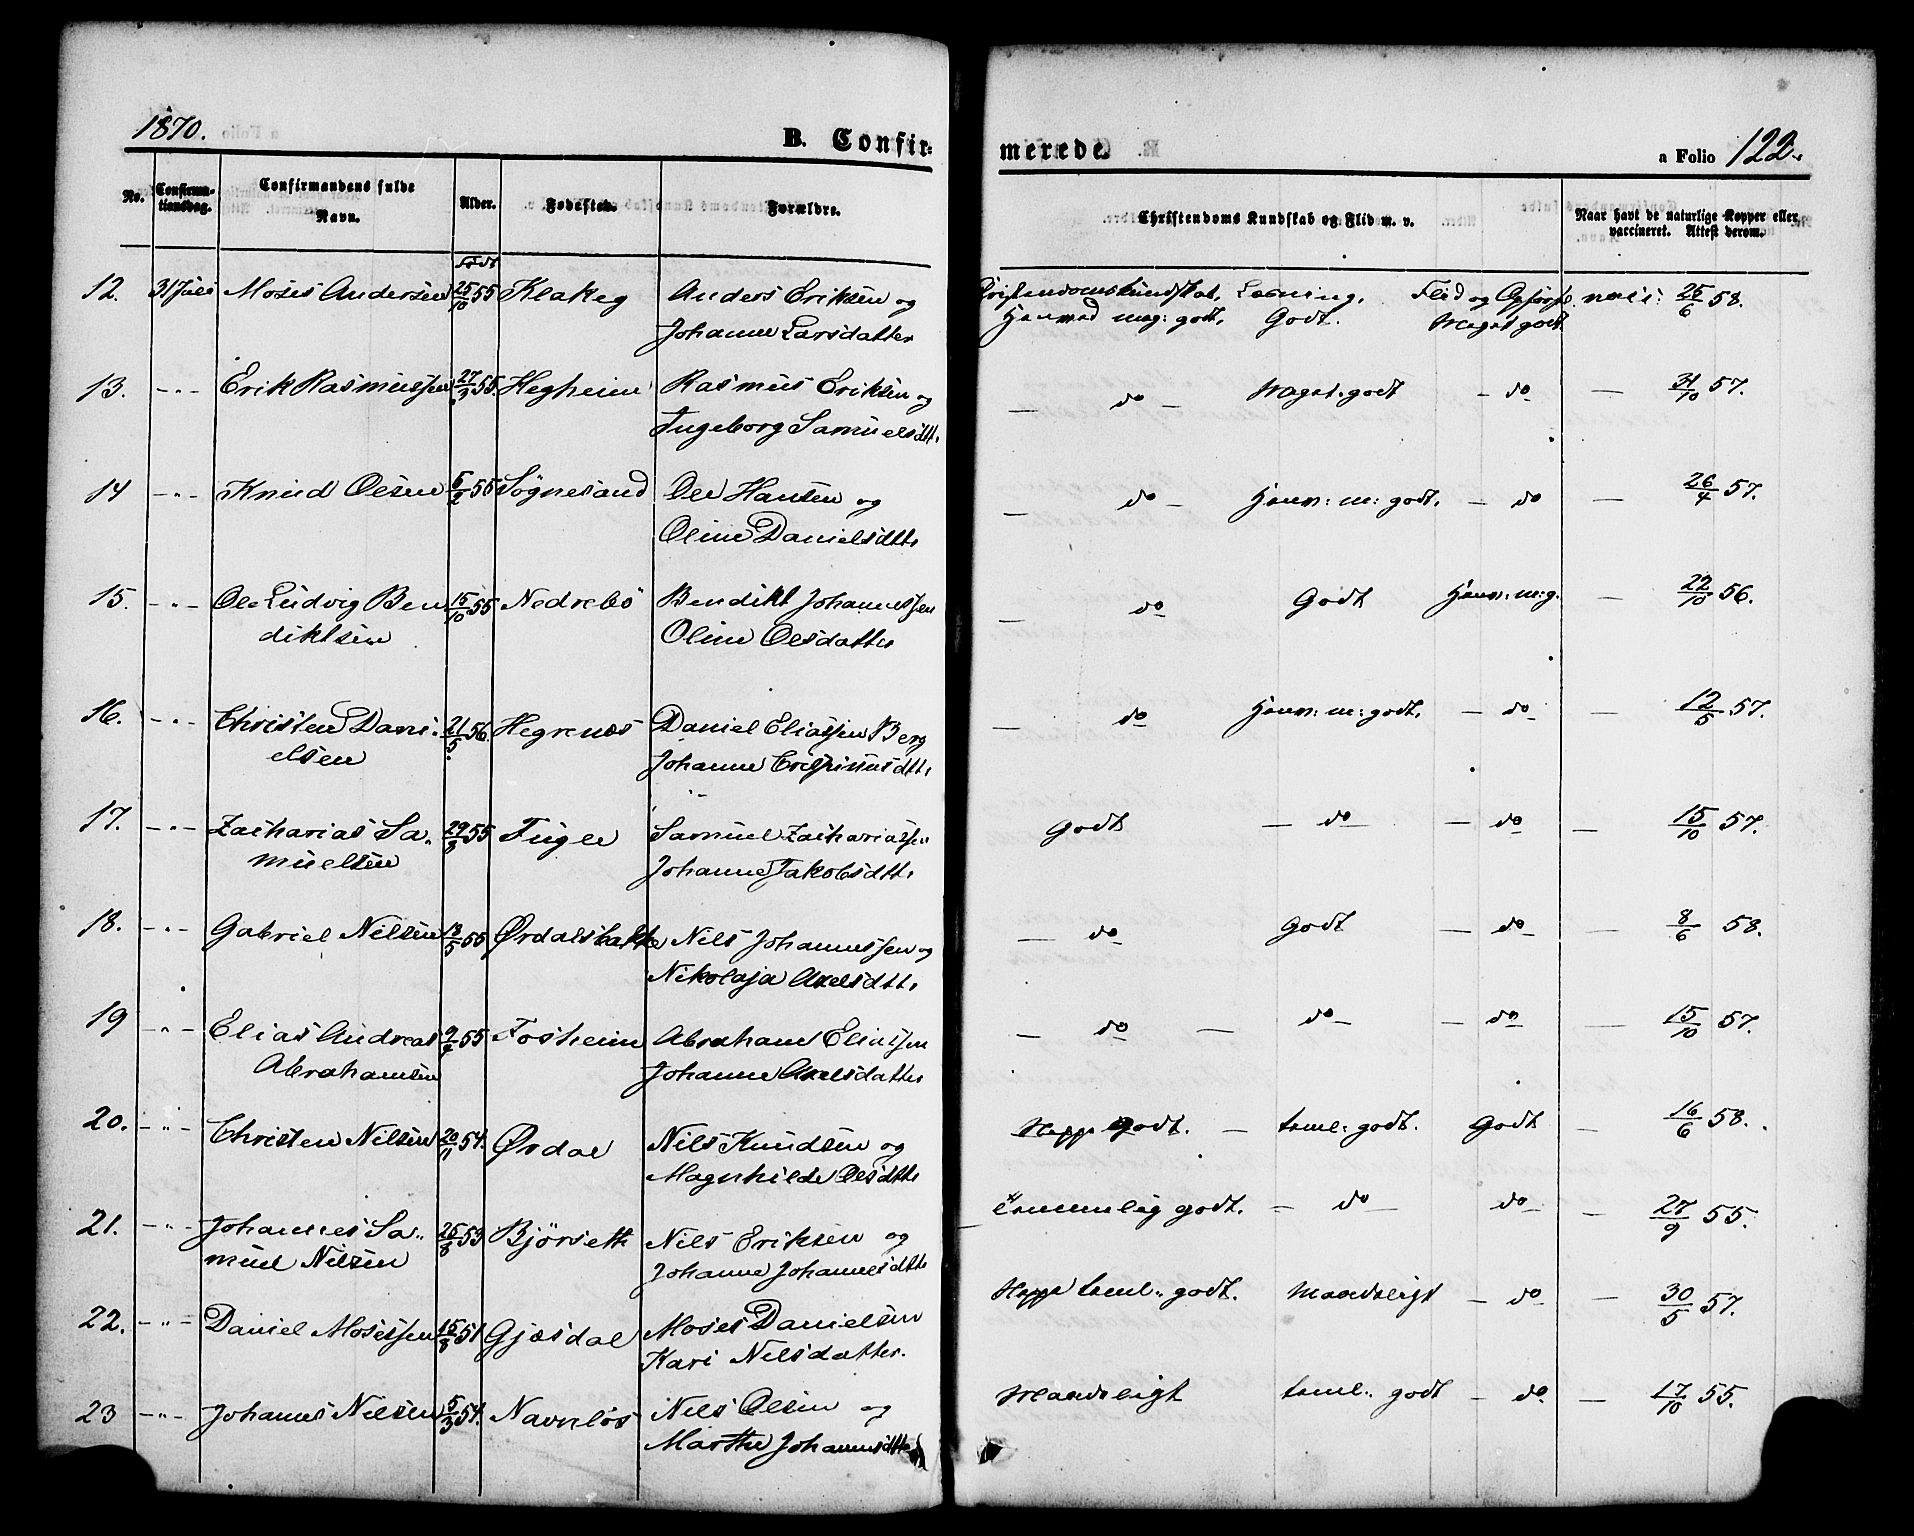 1870.
B. Confir-
merede.
a Folio 122.
No. Confirma-tionsdag. Confirmandens fulde Navn. Alder. Fødested. Forældre. Christendoms Kundskab og Flid m. v. Naar havt de naturlige Kopper eller vaccineret. Attest derom.
født
12. 31 Juli Moses Andersen 25/10 55 Klakeg Anders Eriksen og Christendomskundskab, Læsning, Flid og Opførsel vacc: 25/6 58.
Johanne Larsdatter henimod meg: godt, Godt. Meget godt
13. -"- Erik Rasmussen 27/3 55. Hegheim Rasmus Eriksen og — do — Meget godt - do — 31/10 57.
Ingeborg Samuelsdtt.
14 -"- Knud Olsen 6/2 55 Sögnesand Ole Hansen og — do henn: m: godt. - do — 26/4 57.
Oline Danielsdtt.
15. -"- Ole Ludvig Ben 15/10 55 Nedrebö Bendikt Johannessen — do Godt henn: m: g. — 22/10 56.
diktsen Oline Olsdatter
16. -"- Christen Dani- 21/5 56. Hegrenæs Daniel Eliassen Berg — do henn: m: godt, - do - — 12/5 57.
elsen Johanne Crispinusdtt.
17. -"- Zacharias Sa- 29/8 55 Fugle Samuel Zachariassen Godt — do — — do — 15/10 57.
muelsen Johanne Jakobsdtt.
18. -"- Gabriel Nilsen 18/5 55 Ørdalsbakke Nils Johannessen og — do — Godt — do — — 8/6 58.
Nikolaja Axelsdtt.
19 -"- Elias Andreas 9/4 55 Fosheim Abraham Eliassen — do — do — - do — 15/10 57.
Abrahamsen Johanne Axelsdatter
20. -"- Christen Nilsen 20/11 54. Ørdal Nils Knudsen og Neppe godt. — teml: godt. Godt - 16/6 58.
Magnhilde Olsdtt.
21. -"- Johannes Sa- 26/8 53 Bjørseth Nils Eriksen og — Temmelig godt. - do — do - 27/9 55.
muel Nilsen Johanne Johannesdtt.
22. -"- Daniel Mosessen 15/8 51 Gjæsdal Moses Danielsen Neppe teml: godt. Maadeligt - do — 30/5 57.
Kari Nilsdatter.
23 -"- Johannes Nilsen 5/3 54. Navnløs Nils Olsen og Maadeligt teml: godt - do — 17/10 55.
Marthe Johannesdtt.